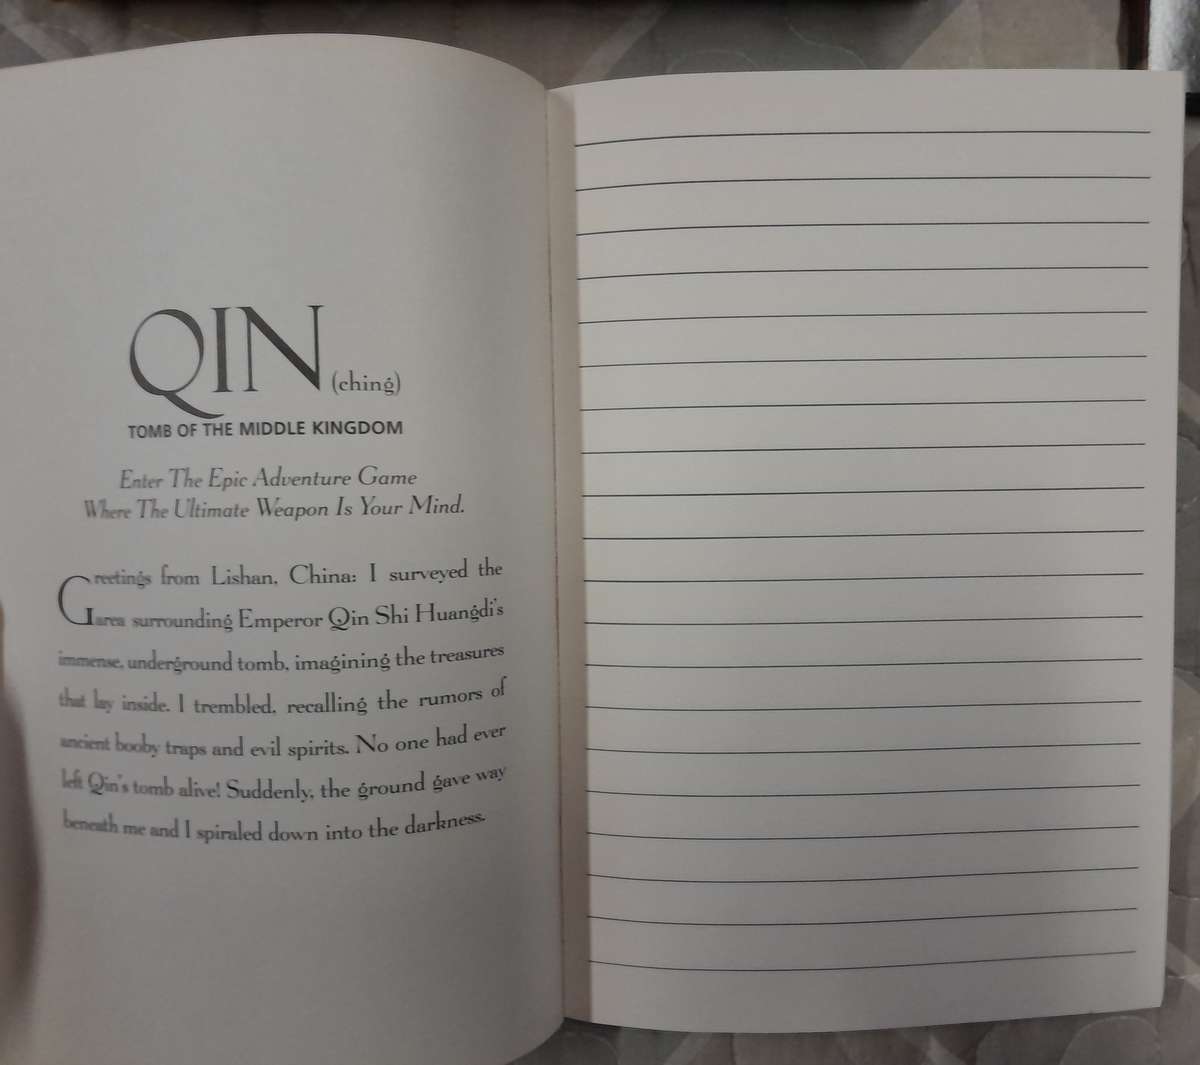 QIN (ching)
TOMB OF THE MIDDLE KINGDOM
Enter The Epic Adventure Game
Where The Ultimate Weapon Is Your Mind.
Greetings from Lishan, China: I surveyed the
area surrounding Emperor Qin Shi Huangdi's
immense, underground tomb, imagining the treasures
that lay inside. I trembled, recalling the rumors of
ancient booby traps and evil spirits. No one had ever
left Qin's tomb alive! Suddenly, the ground gave way
beneath me and I spiraled down into the darkness.